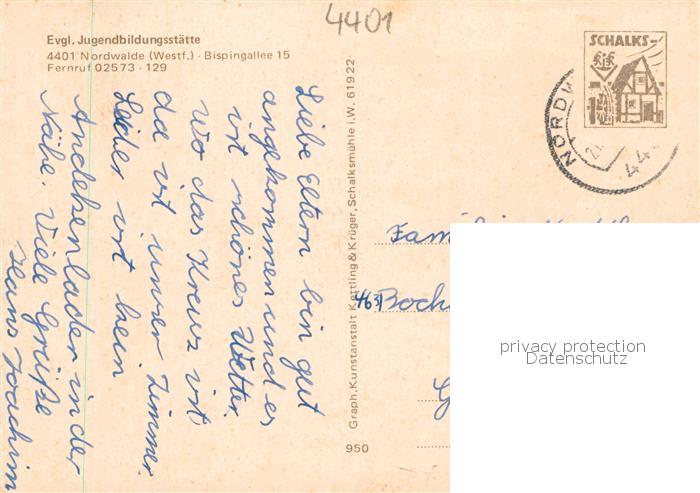 4401
Evgl. Jugendbildungsstätte
4401 Nordwalde (Westf.) · Bispingallee 15
Fernruf 02573 · 129
Liebe Eltern bin gut
angekommen und es
ist schönes Wetter.
Wo das Kreuz ist
da ist unser Zimmer.
Leider ist kein
Andekenladen in der
Nähe. Viele Grüße
Hans Joachim
Graph. Kunstanstalt Kettling & Krüger, Schalksmühle i.W. 61922
950
SCHALKS-
KJK
NORDW
44
Famil
463 Boch
privacy protection
Datenschutz